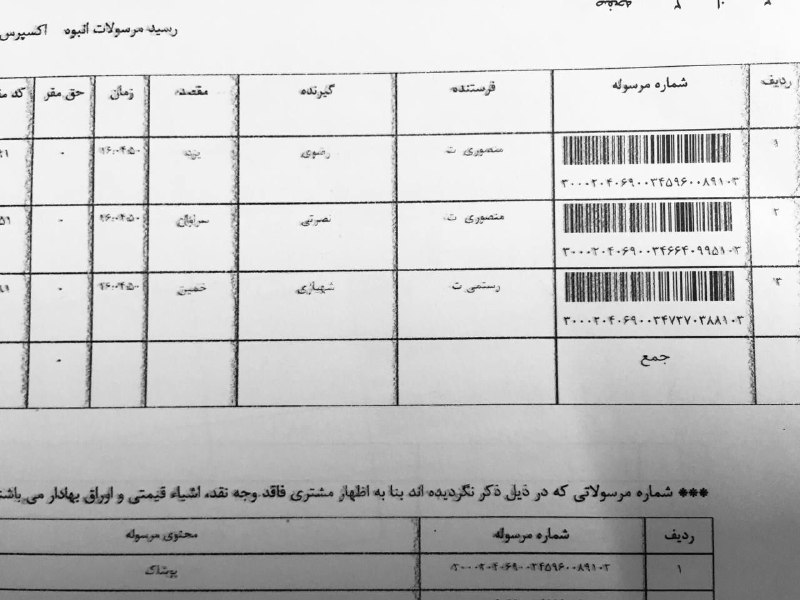 رسید مرسولات انبوه اکسپرس
ردیف شماره مرسوله فرستنده گیرنده مقصد زمان حق مقر کد
۱ منصوری ت رضوی یزد -
۳۰۰۰۲۰۴۰۶۹۰۰۳۴۵۹۶۰۰۸۹۱۰۳
۲ منصوری ت نصرتی سراوان -
۳۰۰۰۲۰۴۰۶۹۰۰۳۴۶۶۴۰۹۹۵۱۰۳
۳ رستمی ت شهبازی خمین -
۳۰۰۰۲۰۴۰۶۹۰۰۳۴۷۳۷۰۳۸۸۱۰۳
جمع -
*** شماره مرسولاتی که در ذیل ذکر نگردیده اند بنا به اظهار مشتری فاقد وجه نقد، اشیاء قیمتی و اوراق بهادار می باشند
ردیف شماره مرسوله محتوی مرسوله
۱ ۳۰۰۰۲۰۴۰۶۹۰۰۳۴۵۹۶۰۰۸۹۱۰۳ پوشاک